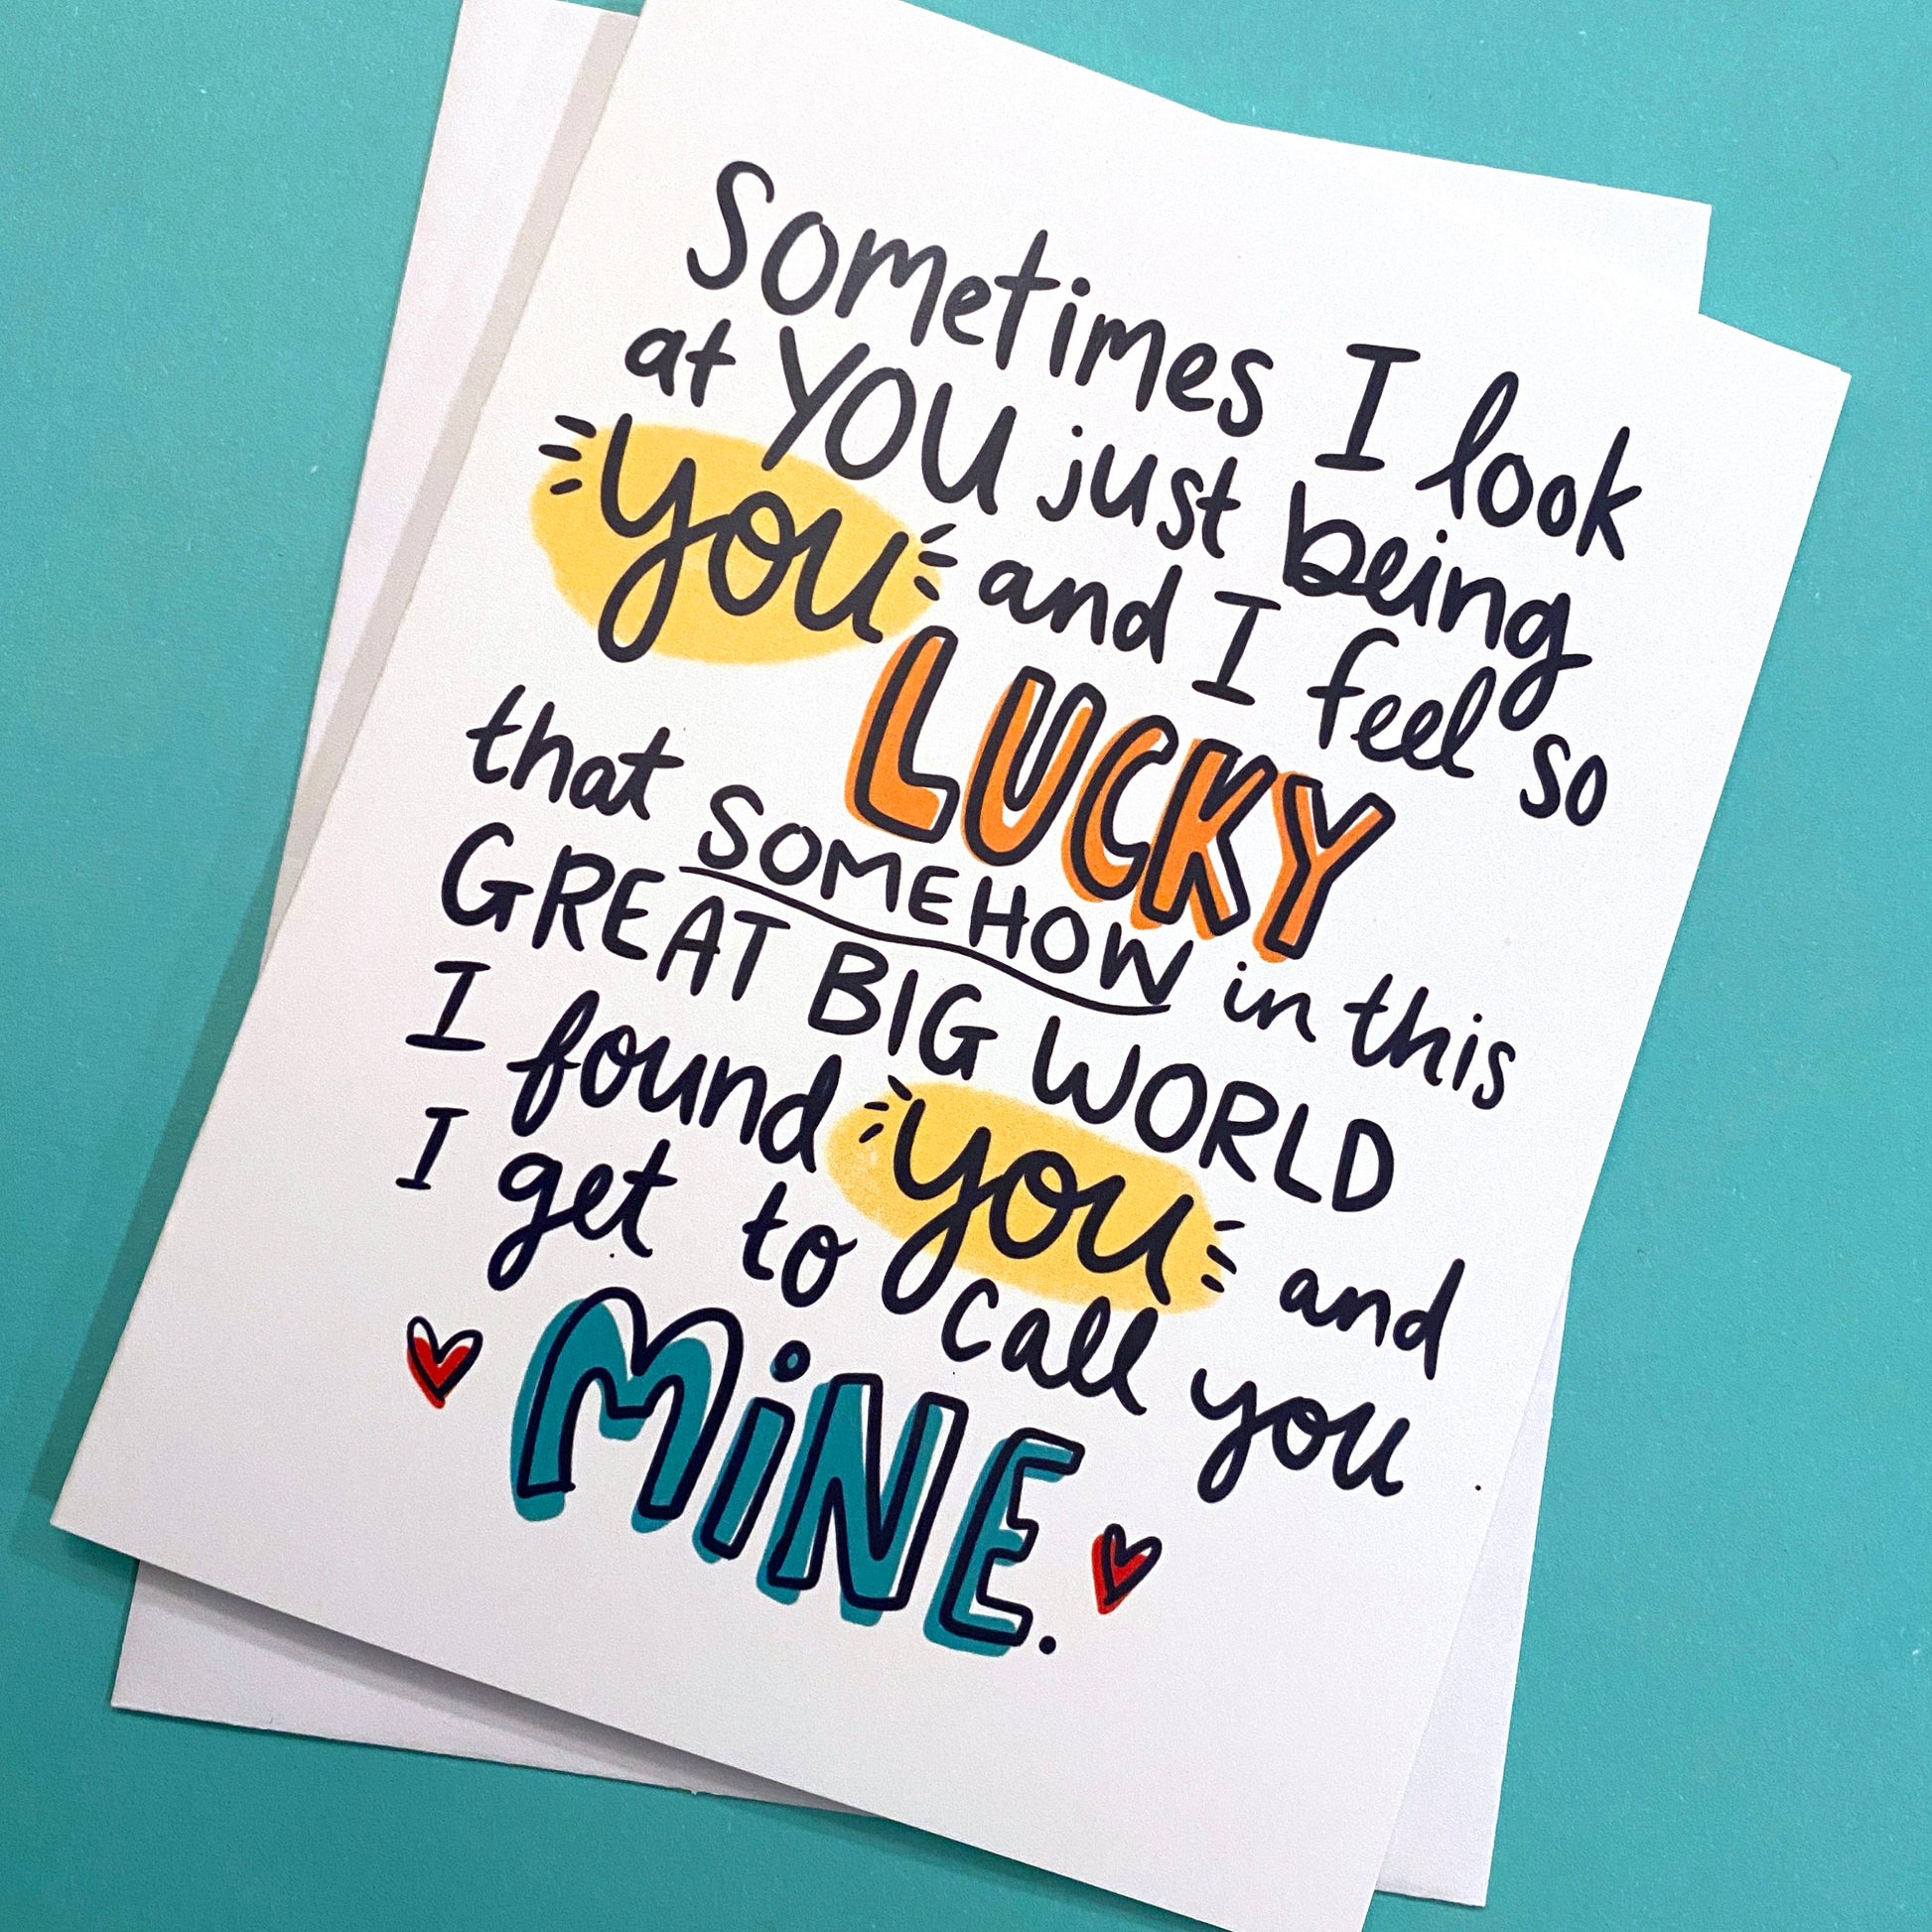 Sometimes I look
at YOU just being
you and I feel so
LUCKY
that SOMEHOW in this
GREAT BIG WORLD
I found you and
I get to call you
MiNE.